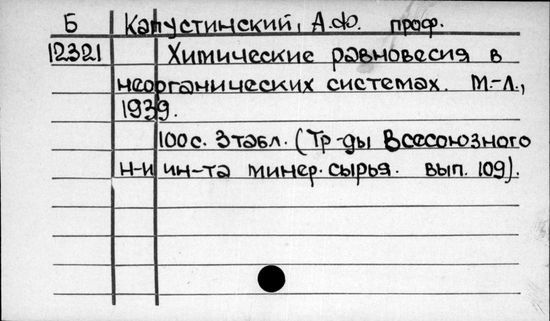 Б Капустинский, А.Ф. проф.
12321 Химические равновесия в
неорганических системах. М.-Л.,
1939.
100 с. 3 табл. (Тр-ды Всесоюзного
н-и ин-та минер. сырья. вып. 109).